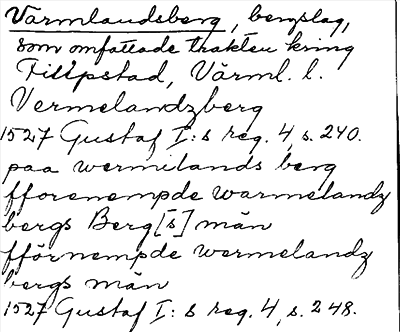 Värmlandsberg, bergslag,
som omfattade trakten kring
Filipstad, Värml. l.
Vermelandzberg
1527 Gustaf I:s reg. 4, s. 240.
paa wermilands berg
fforenempde warmelandz
bergs Berg[s] män
fförnempde wermelandz
bergs män
1527 Gustaf I:s reg. 4, s. 248.